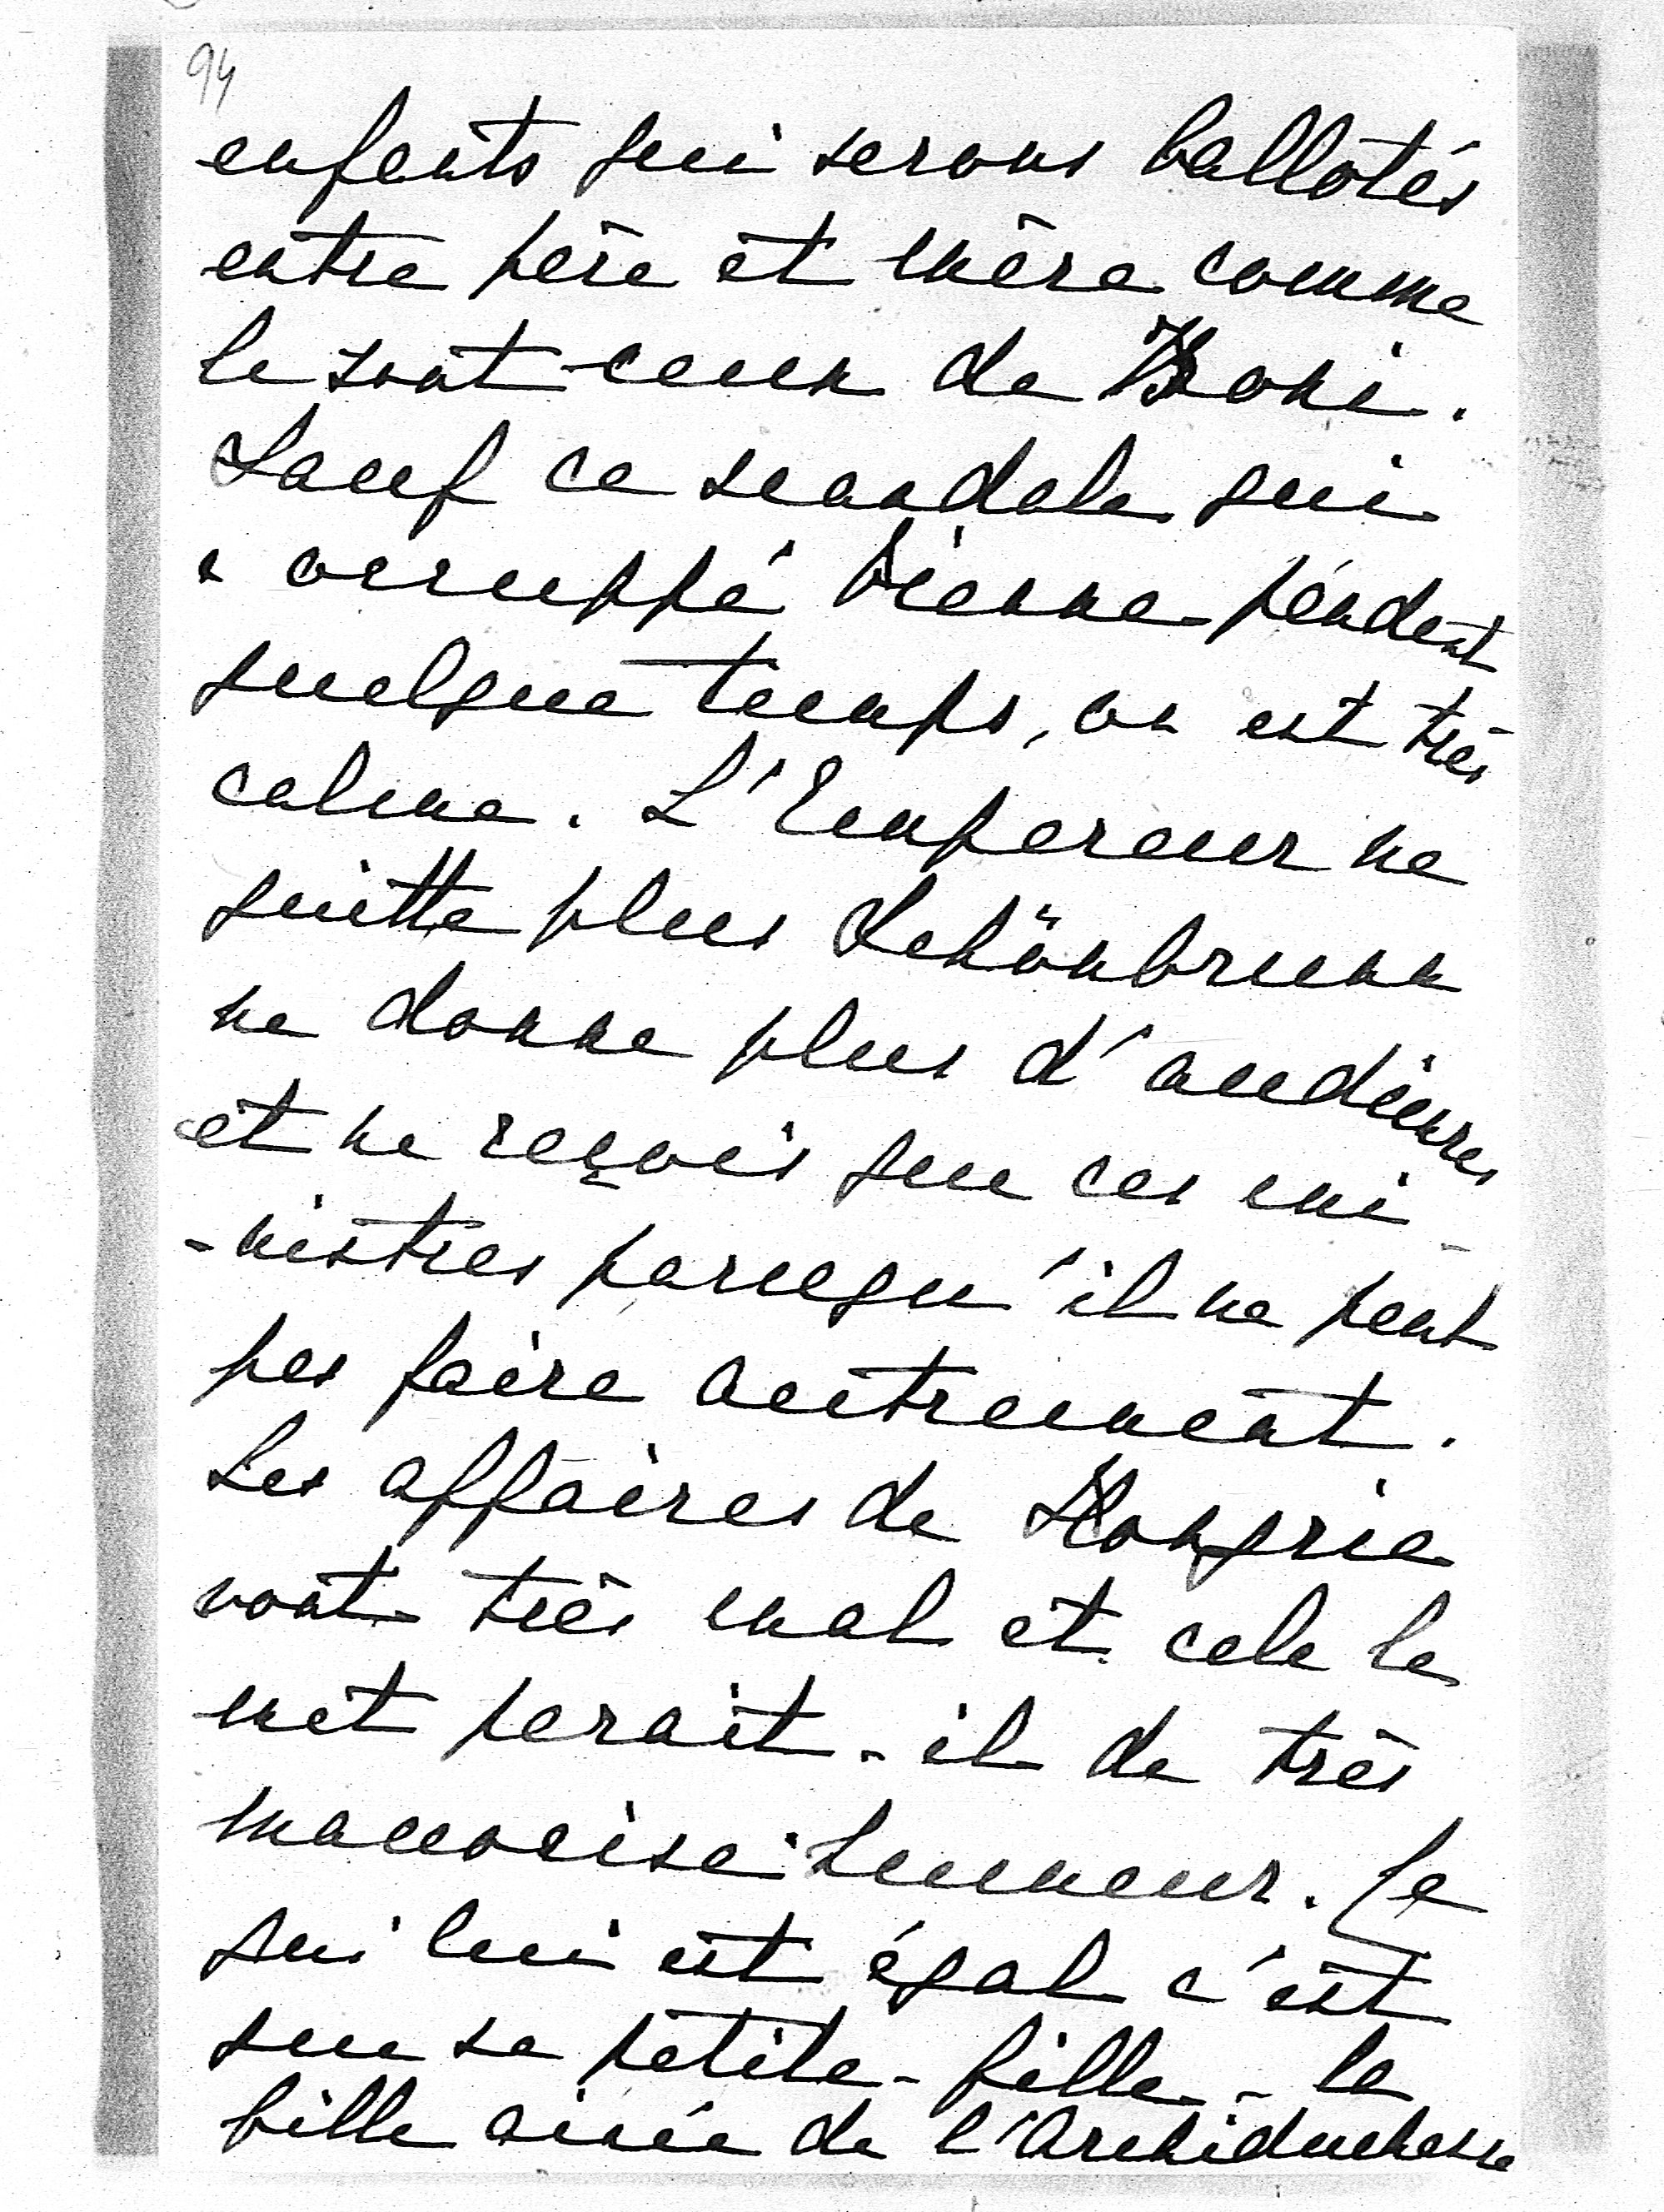 94
enfants qui serons ballotés
entre père et mère comme
le sont ceux de Boni.
Sauf ce scandale qui
a occuppé Vienne pendant
quelque temps, on est très
calme. L'Empereur ne
quitte plus Schönbrunn
ne donne plus d'audiences
et ne reçois que ces mi-
-nistres parcequ'il ne peut
pas faire autrement.
Les affaires de Hongrie
vont très mal et cela le
met parait-il de très
mauvaise humeur. Ce
qui lui est égal c'est
que sa petite-fille - la
fille ainée de l'Archiduchesse